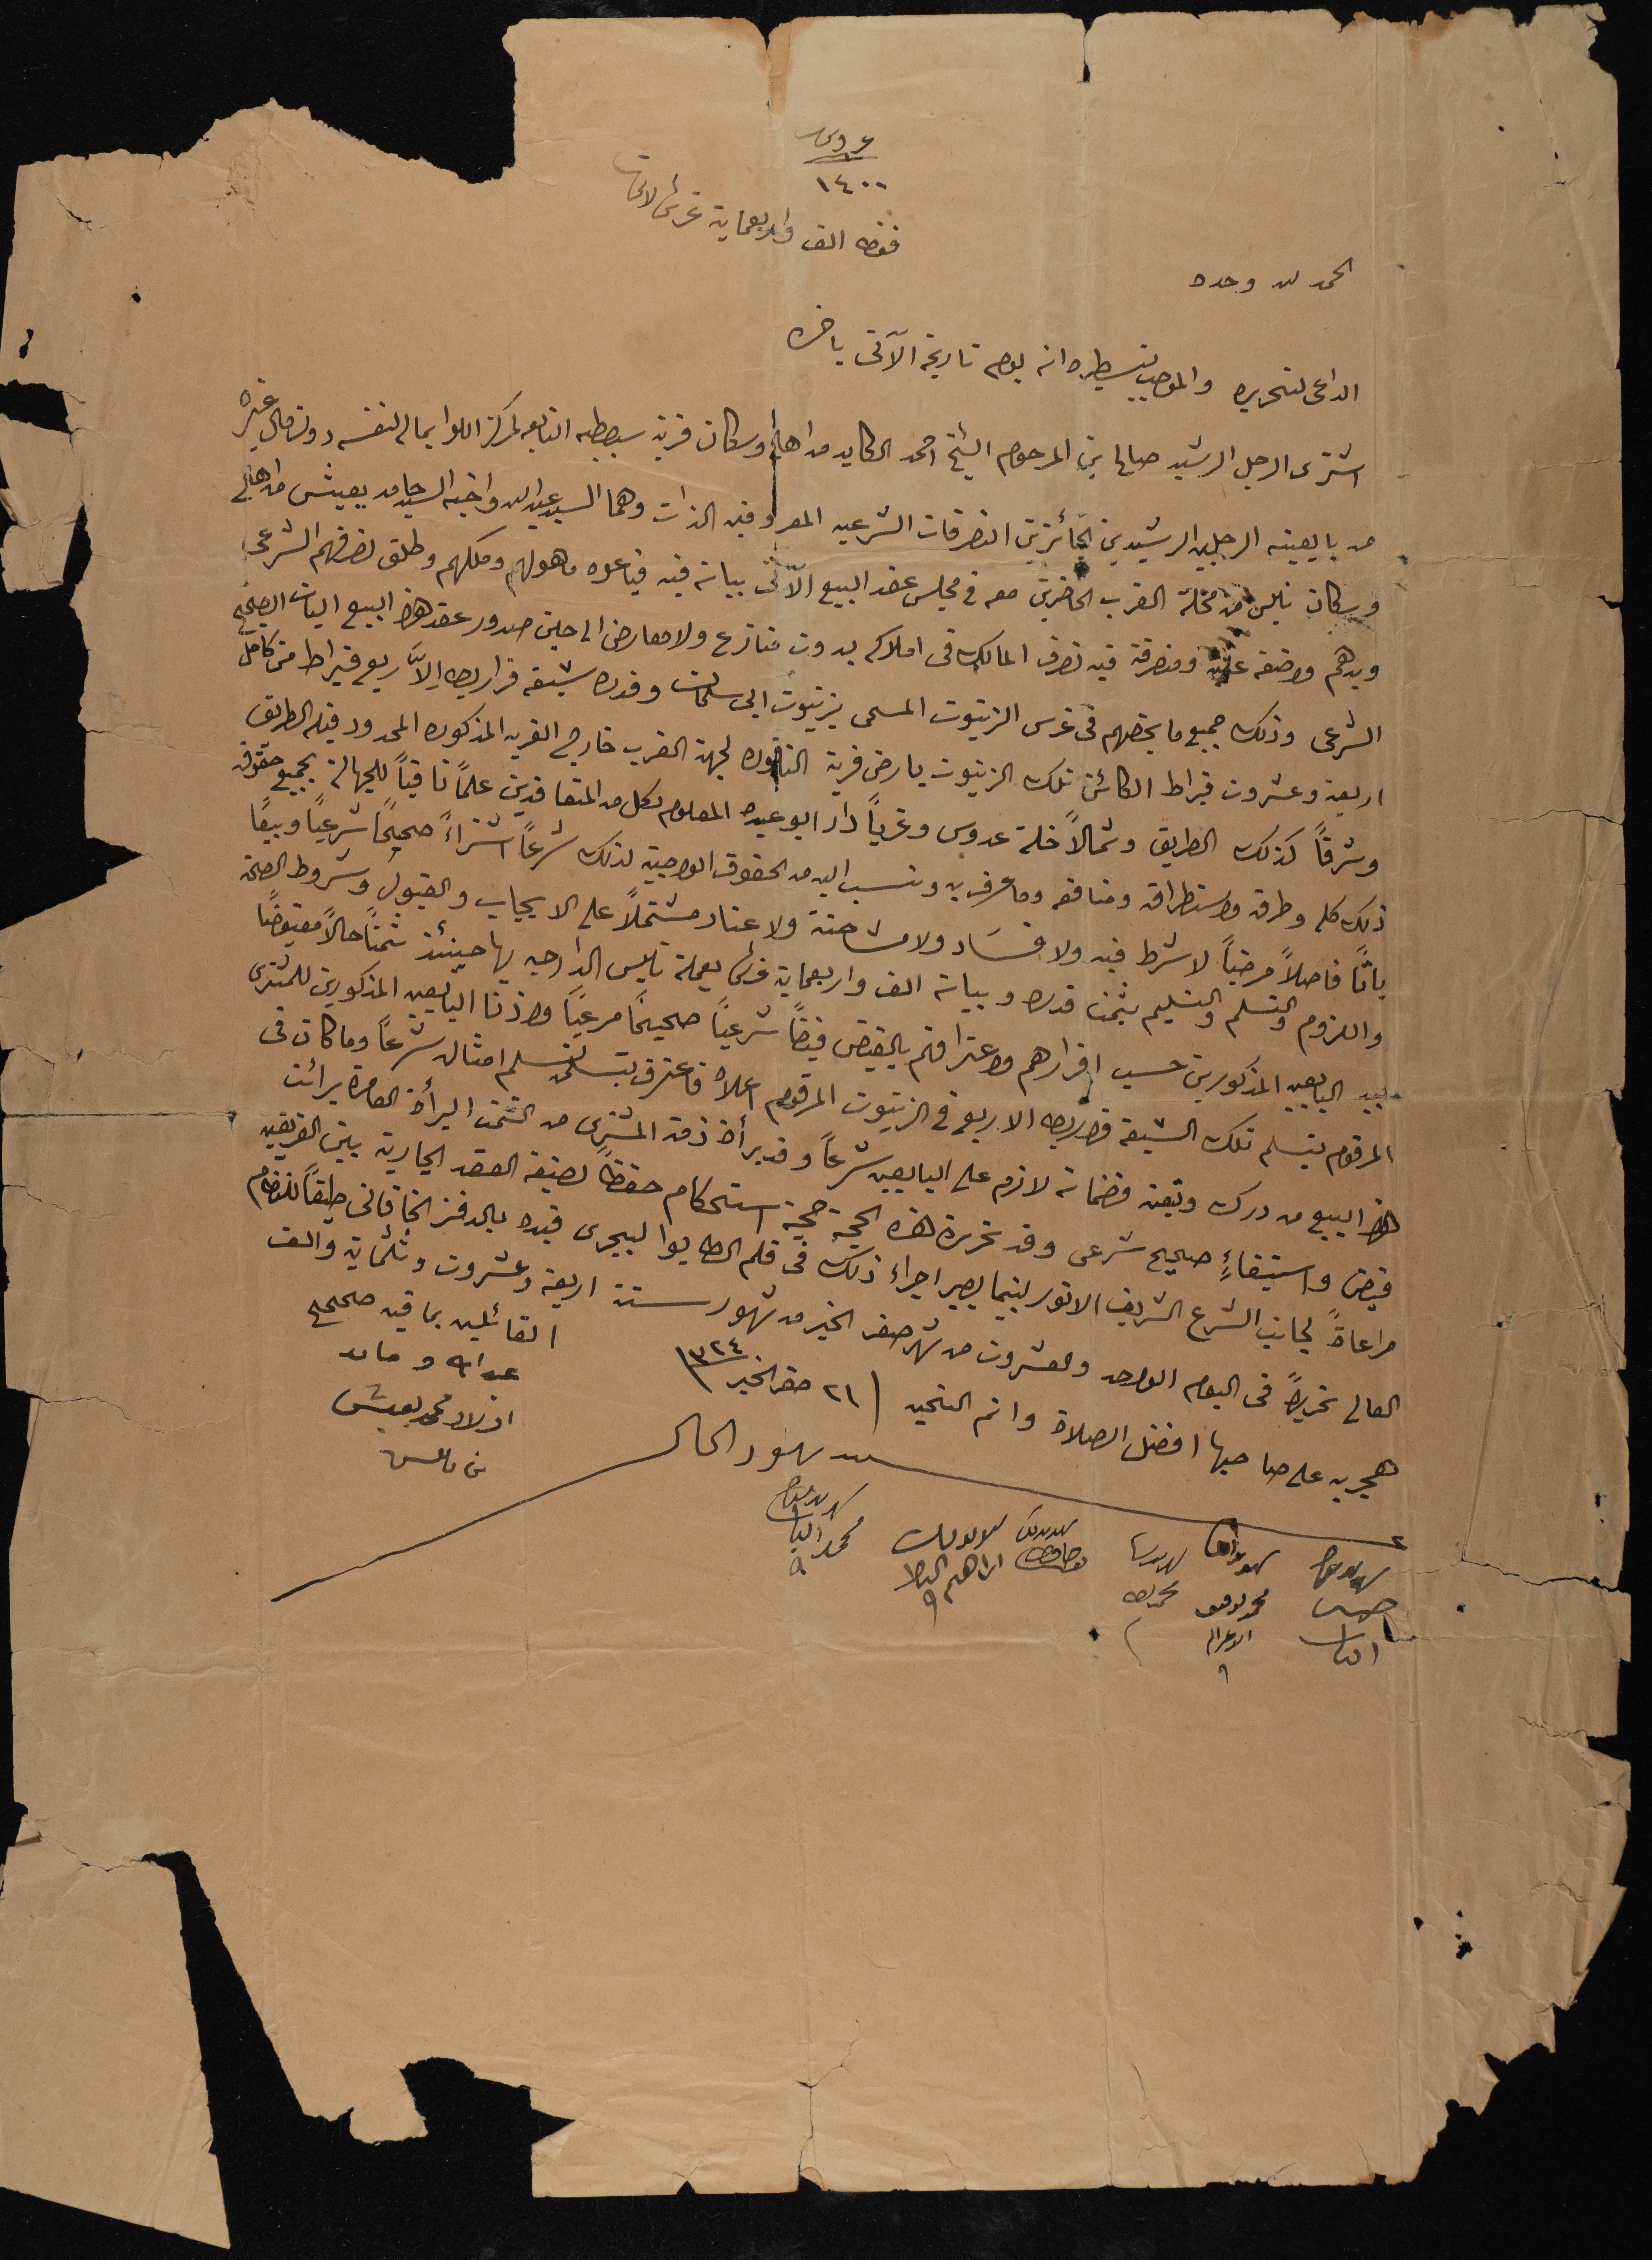 ١٤٠٠
فقط الف واربعماية غرش لاغير
الحمد لله وحده
الداعى لتحريره والموجب لتسطيره انه يوم تاريخه الآتى باخره
اشترى الرجل الرشيد صالح بن المرحوم الشيخ احمد الكايد من اهالى وسكان قرية سبسطيه التابعه لمركز اللوا بماله لنفسه دون مال غيره
من بايعينه الرجلين الرشيدين الجائزين التصرفات الشرعيه المعروفين الذات وهما السيد عبدالله واخيه السيد حامد يعيش من اهالى
وسكان نابلس من محلة الغرب الحاضرين معه فى مجلس عقد البيع الآتى بيانه فيه فباعوه ما هو لهم وملكهم وطلق تصرفهم الشرعى
وبيدهم وواضعة عليه ومتصرفة فيه تصرف المالك فى املاكه بدون منازع ولا معارض الى حين صدور عقد هذا البيع البات الصحيح
الشرعى وذلك جميع ما يخصهم فى غرس الزيتون المسمى بزيتون ابى سلمان وقدره سبعة قراريط الاّ ربع قيراط من كامل
اربعة وعشرون قيراط الكائن تلك الزيتون بارض قرية الناقوره لجهة الغرب خارج القريه المذكوره المحدود قبلة الطريق
وشرقاً كذلك الطريق وشمالاً خلة عدوس وغرباً دار ابو عيده المعلوم لكل من المتعاقدين علماً نافياً للجهالة بجميع حقوق
ذلك كله وطرقه واستطراقه ومنافعه وما عرف به ونسب اليه من الحقوق الواجبة لذلك شرعاً اشتراءً صحيحاً شرعياً وبيعاً
باتاً فاصلاً مرضياً لا شرط فيه ولا فساد ولا مشاحنة ولا عناد مشتملاً على الايجاب والقبول وشروط الصحة
واللزوم والتسلم والتسليم بثمن قدره وبيانه الف واربعماية غرش بعملة نابلس الدارجه بها حينئذ ثمناً حالاً مقبوضاً
بيد البايعين المذكورين حسب اقرارهم واعترافهم بالقبض قبضاً شرعياً صحيحاً مرعياً واذنا البايعين المذكورين للمشترى
المرقوم بتسلم تلك السبعة قراريط الا ربع فى الزيتون المرقوم اعلاه فاعترف بتسلمه تسلم امثاله شرعاً وما كان فى
هذا البيع من درك وتبعه فضمانه لازم على البايعين شرعاً وقد برأة ذمة المشترى من الثمن البرأة العامة برائت
قبض واستيفاءٍ صحيح شرعى وقد تحررة هذه الحجة حجة استحكام حفظاً لصيغة العقد الجارية بين الفريقين
مراعاةً لجانب الشرع الشريف الانور لبينما يصير اجراء ذلك فى قلم الطابوا ليجرى قيده بالدفتر الخاقانى طبقاً للنظام
العالى تحريراً فى اليوم الواحد والعشرون من شهر صفر الخير من شهور سنة اربعة وعشرون وثلثماية والف
هجريه على صاحبها افضل الصلاة واتم التحيه ٢١ صفر الخير ١٣٢٤
القائلين بما فيه صحيح
عبدالله وحامد
اولاد محمد يعيش
من نابلس
شهود الحال
شهد بذلك
محمد
شهد بذلك
ابراهيم
شهد بذلك
شهد بذلك
شهد بذلك
محمد توفيق
شهد بذلك
حسن